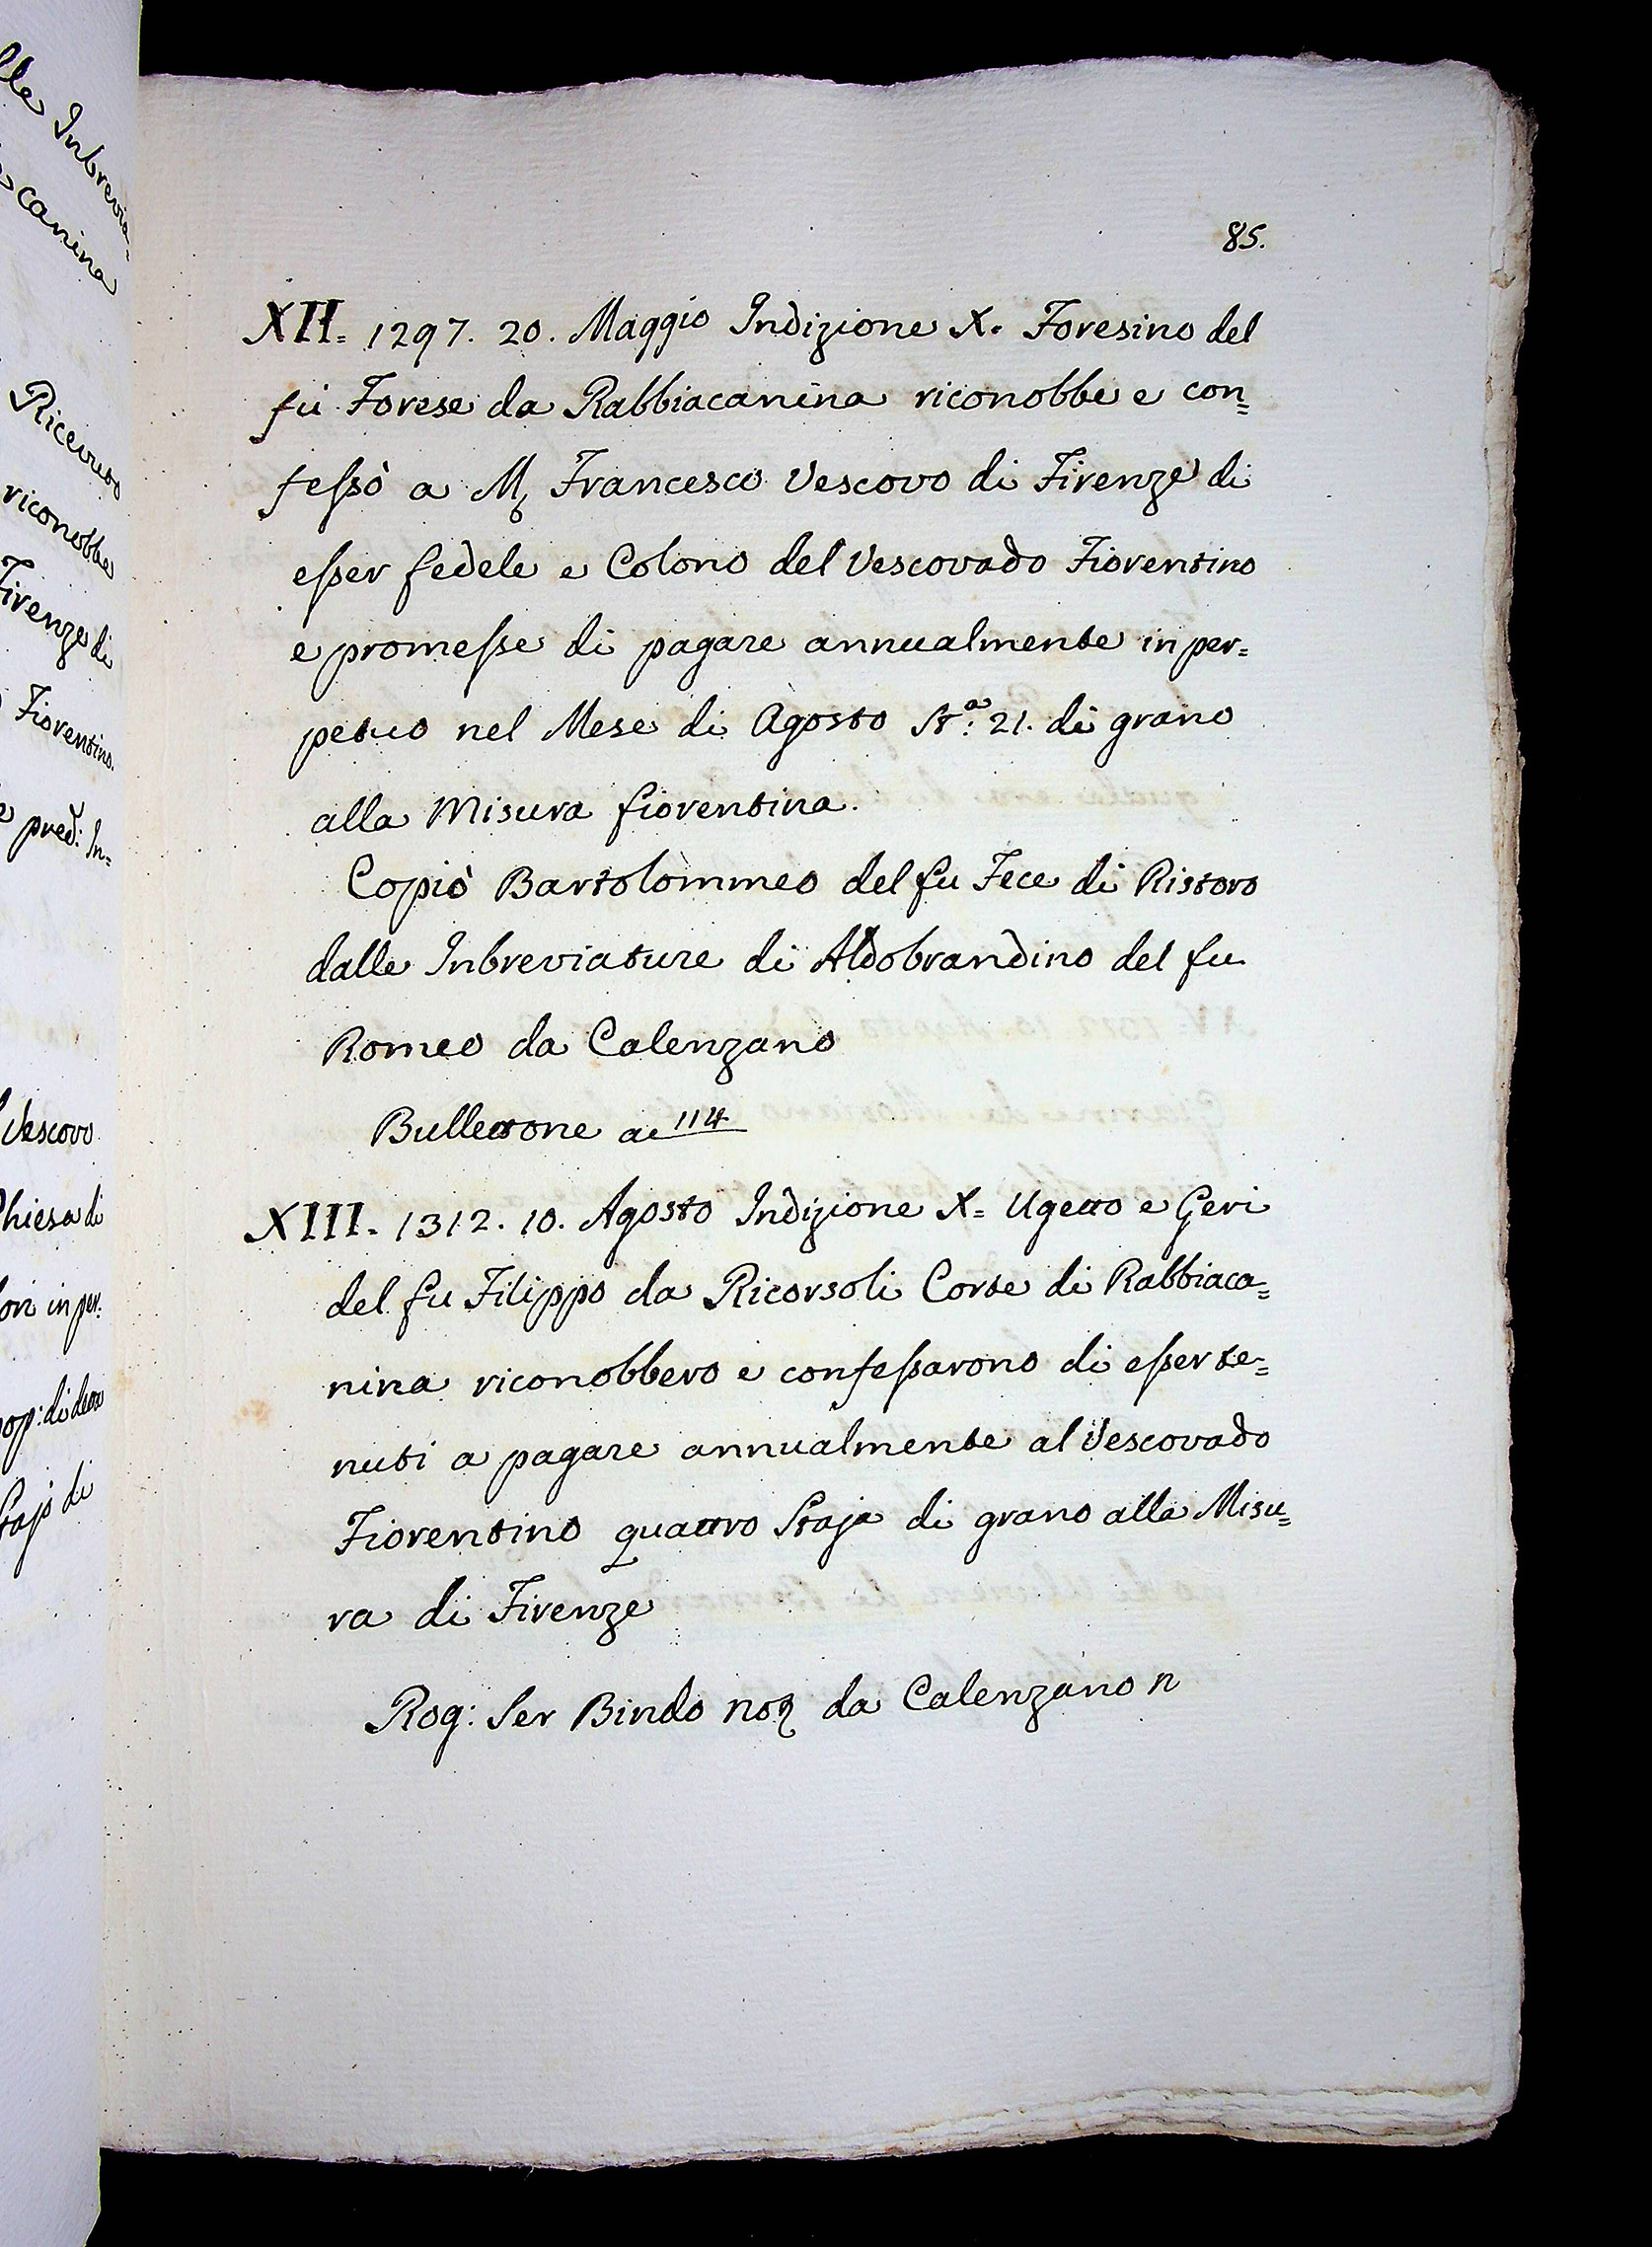 85.
XII= 1297. 20. Maggio Indizione X. Foresino del
fù Forese da Rabbiacanina riconobbe e con=
fessò a M Francesco Vescovo di Firenze di
esser fedele e Colono del Vescovado Fiorentino
e promesse di pagare annualmente in per=
petuo nel Mese di Agosto St.ª 21. di grano
alla Misura fiorentina.
Copiò Bartolommeo del fu Fece di Ristoro
dalle Inbreviature di Aldobrandino del fu
Romeo da Calenzano
Bullettone a 114
XIII. 1312. 10. Agosto Indizione X= Ugetto e Geri
del fu Filippo da Ricorsoli Corte di Rabbiaca=
nina riconobbero e confessarono di esser te=
nuti a pagare annualmente al Vescovado
Fiorentino quattro Staja di grano alla Misu=
ra di Firenze
Rog: Ser Bindo not da Calenzano n
lle Inbrevia=
canina
Ricevuto
riconobbe
Firenze di
Fiorentino.
pred: In=
Vescovo
Chiesa di
in per:
di detta
Stajo di